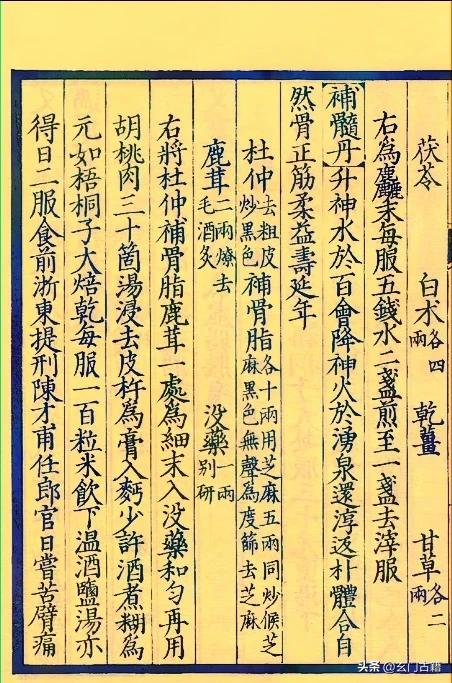 茯苓　白术各四兩　乾薑　甘草各二兩
右為麤末每服五錢水二盞煎至一盞去滓服
【補髓丹】升神水於百會降神火於湧泉還淳返朴體合自
然骨正筋柔益壽延年
杜仲去粗皮炒黑色　補骨脂各十兩用芝麻五兩同炒候芝麻黑色無聲為度篩去芝麻
鹿茸二兩燎去毛酒炙　没藥一兩別研
右將杜仲補骨脂鹿茸一處為細末入没藥和匀再用
胡桃肉三十箇湯浸去皮杵為膏入麪少許酒煮糊為
元如梧桐子大焙乾每服一百粒米飲下温酒鹽湯亦
得日二服食前浙東提刑陳才甫任郎官日嘗苦臂痛
头条@玄门古籍